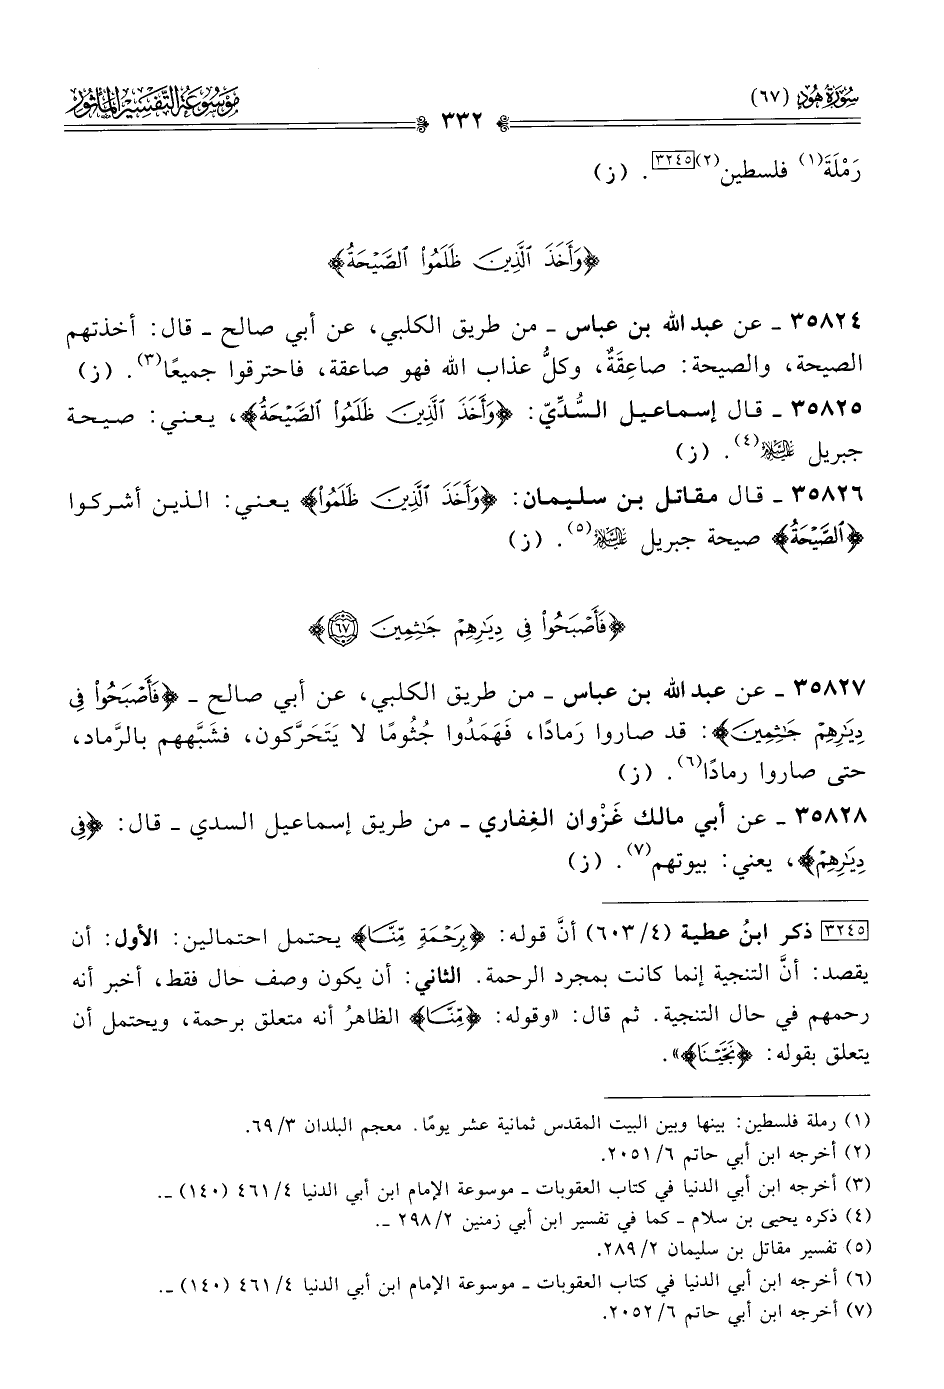 سُورَةُ هُودٍ (٦٧)
٣٣٢
مَوْسُوعَةُ التَّفْسِيرِ المَأْثُورِ
رَمْلَةَ(١) فلسطين(٢)[٣٢٤٥]. (ز)
﴿وَأَخَذَ ٱلَّذِينَ ظَلَمُوا۟ ٱلصَّيْحَةُ﴾
٣٥٨٢٤ ـ عن عبد الله بن عباس ـ من طريق الكلبي، عن أبي صالح ـ قال: أخذتهم
الصيحة، والصيحة: صاعِقَةٌ، وكلُّ عذاب الله فهو صاعقة، فاحترقوا جميعًا(٣). (ز)
٣٥٨٢٥ ـ قال إسماعيل السُّدِّيّ: ﴿وَأَخَذَ ٱلَّذِينَ ظَلَمُوا۟ ٱلصَّيْحَةُ﴾، يعني: صيحة
جبريل عليه السلام(٤). (ز)
٣٥٨٢٦ ـ قال مقاتل بن سليمان: ﴿وَأَخَذَ ٱلَّذِينَ ظَلَمُوا۟﴾ يعني: الذين أشركوا
﴿ٱلصَّيْحَةُ﴾ صيحة جبريل عليه السلام(٥). (ز)
﴿فَأَصْبَحُوا۟ فِى دِيَـٰرِهِمْ جَـٰثِمِينَ ٦٧﴾
٣٥٨٢٧ ـ عن عبد الله بن عباس ـ من طريق الكلبي، عن أبي صالح ـ ﴿فَأَصْبَحُوا۟ فِى
دِيَـٰرِهِمْ جَـٰثِمِينَ﴾: قد صاروا رَمادًا، فَهَمَدُوا جُثُومًا لا يَتَحَرَّكون، فشَبَّههم بالرَّماد،
حتى صاروا رمادًا(٦). (ز)
٣٥٨٢٨ ـ عن أبي مالك غَزْوان الغِفاري ـ من طريق إسماعيل السدي ـ قال: ﴿فِى
دِيَـٰرِهِمْ﴾، يعني: بيوتهم(٧). (ز)
[٣٢٤٥] ذكر ابنُ عطية (٤/٦٠٣) أنَّ قوله: ﴿بِرَحْمَةٍ مِّنَّا﴾ يحتمل احتمالين: الأول: أن
يقصد: أنَّ التنجية إنما كانت بمجرد الرحمة. الثاني: أن يكون وصف حال فقط، أخبر أنه
رحمهم في حال التنجية. ثم قال: «وقوله: ﴿مِّنَّا﴾ الظاهرُ أنه متعلق برحمة، ويحتمل أن
يتعلق بقوله: ﴿نَجَّيْنَا﴾».
(١) رملة فلسطين: بينها وبين البيت المقدس ثمانية عشر يومًا. معجم البلدان ٦٩/٣.
(٢) أخرجه ابن أبي حاتم ٢٠٥١/٦.
(٣) أخرجه ابن أبي الدنيا في كتاب العقوبات ـ موسوعة الإمام ابن أبي الدنيا ٤٦١/٤ (١٤٠) ـ.
(٤) ذكره يحيى بن سلام ـ كما في تفسير ابن أبي زمنين ٢٩٨/٢ ـ.
(٥) تفسير مقاتل بن سليمان ٢٨٩/٢.
(٦) أخرجه ابن أبي الدنيا في كتاب العقوبات ـ موسوعة الإمام ابن أبي الدنيا ٤٦١/٤ (١٤٠) ـ.
(٧) أخرجه ابن أبي حاتم ٢٠٥٢/٦.